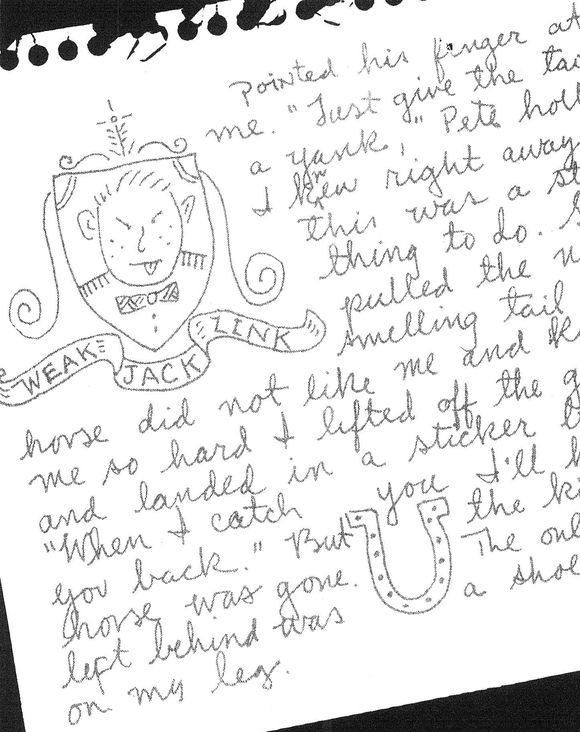 Pointed his finger at
me. "Just give the tai
a yank," Pete holl
I knew right away
this was a st
thing to do.
pulled the
smelling tail
WEAK JACK LINK
horse did not like me and k
me so hard I lifted off the g
and landed in a sticker
"When I catch you I'll
you back." But the ki
horse was gone. The onl
left behind was a shoe
on my leg.